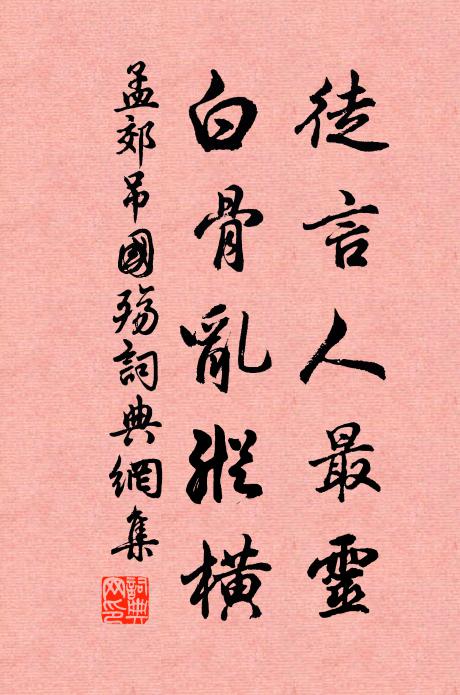 徒言人最靈
白骨亂縱橫
孟郊弔國殤詞典網集
詞典網印